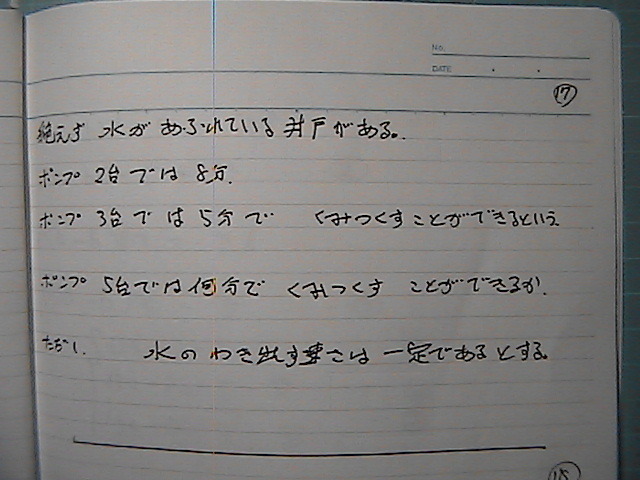 No.
DATE
⑰
絶えず 水が あふれている 井戸がある。
ポンプ 2台では 8分.
ポンプ 3台では 5分で くみつくすことができるといえ
ポンプ 5台では何分で くみつくす ことができるか.
ただし. 水の わき出す量さは 一定であるとする。